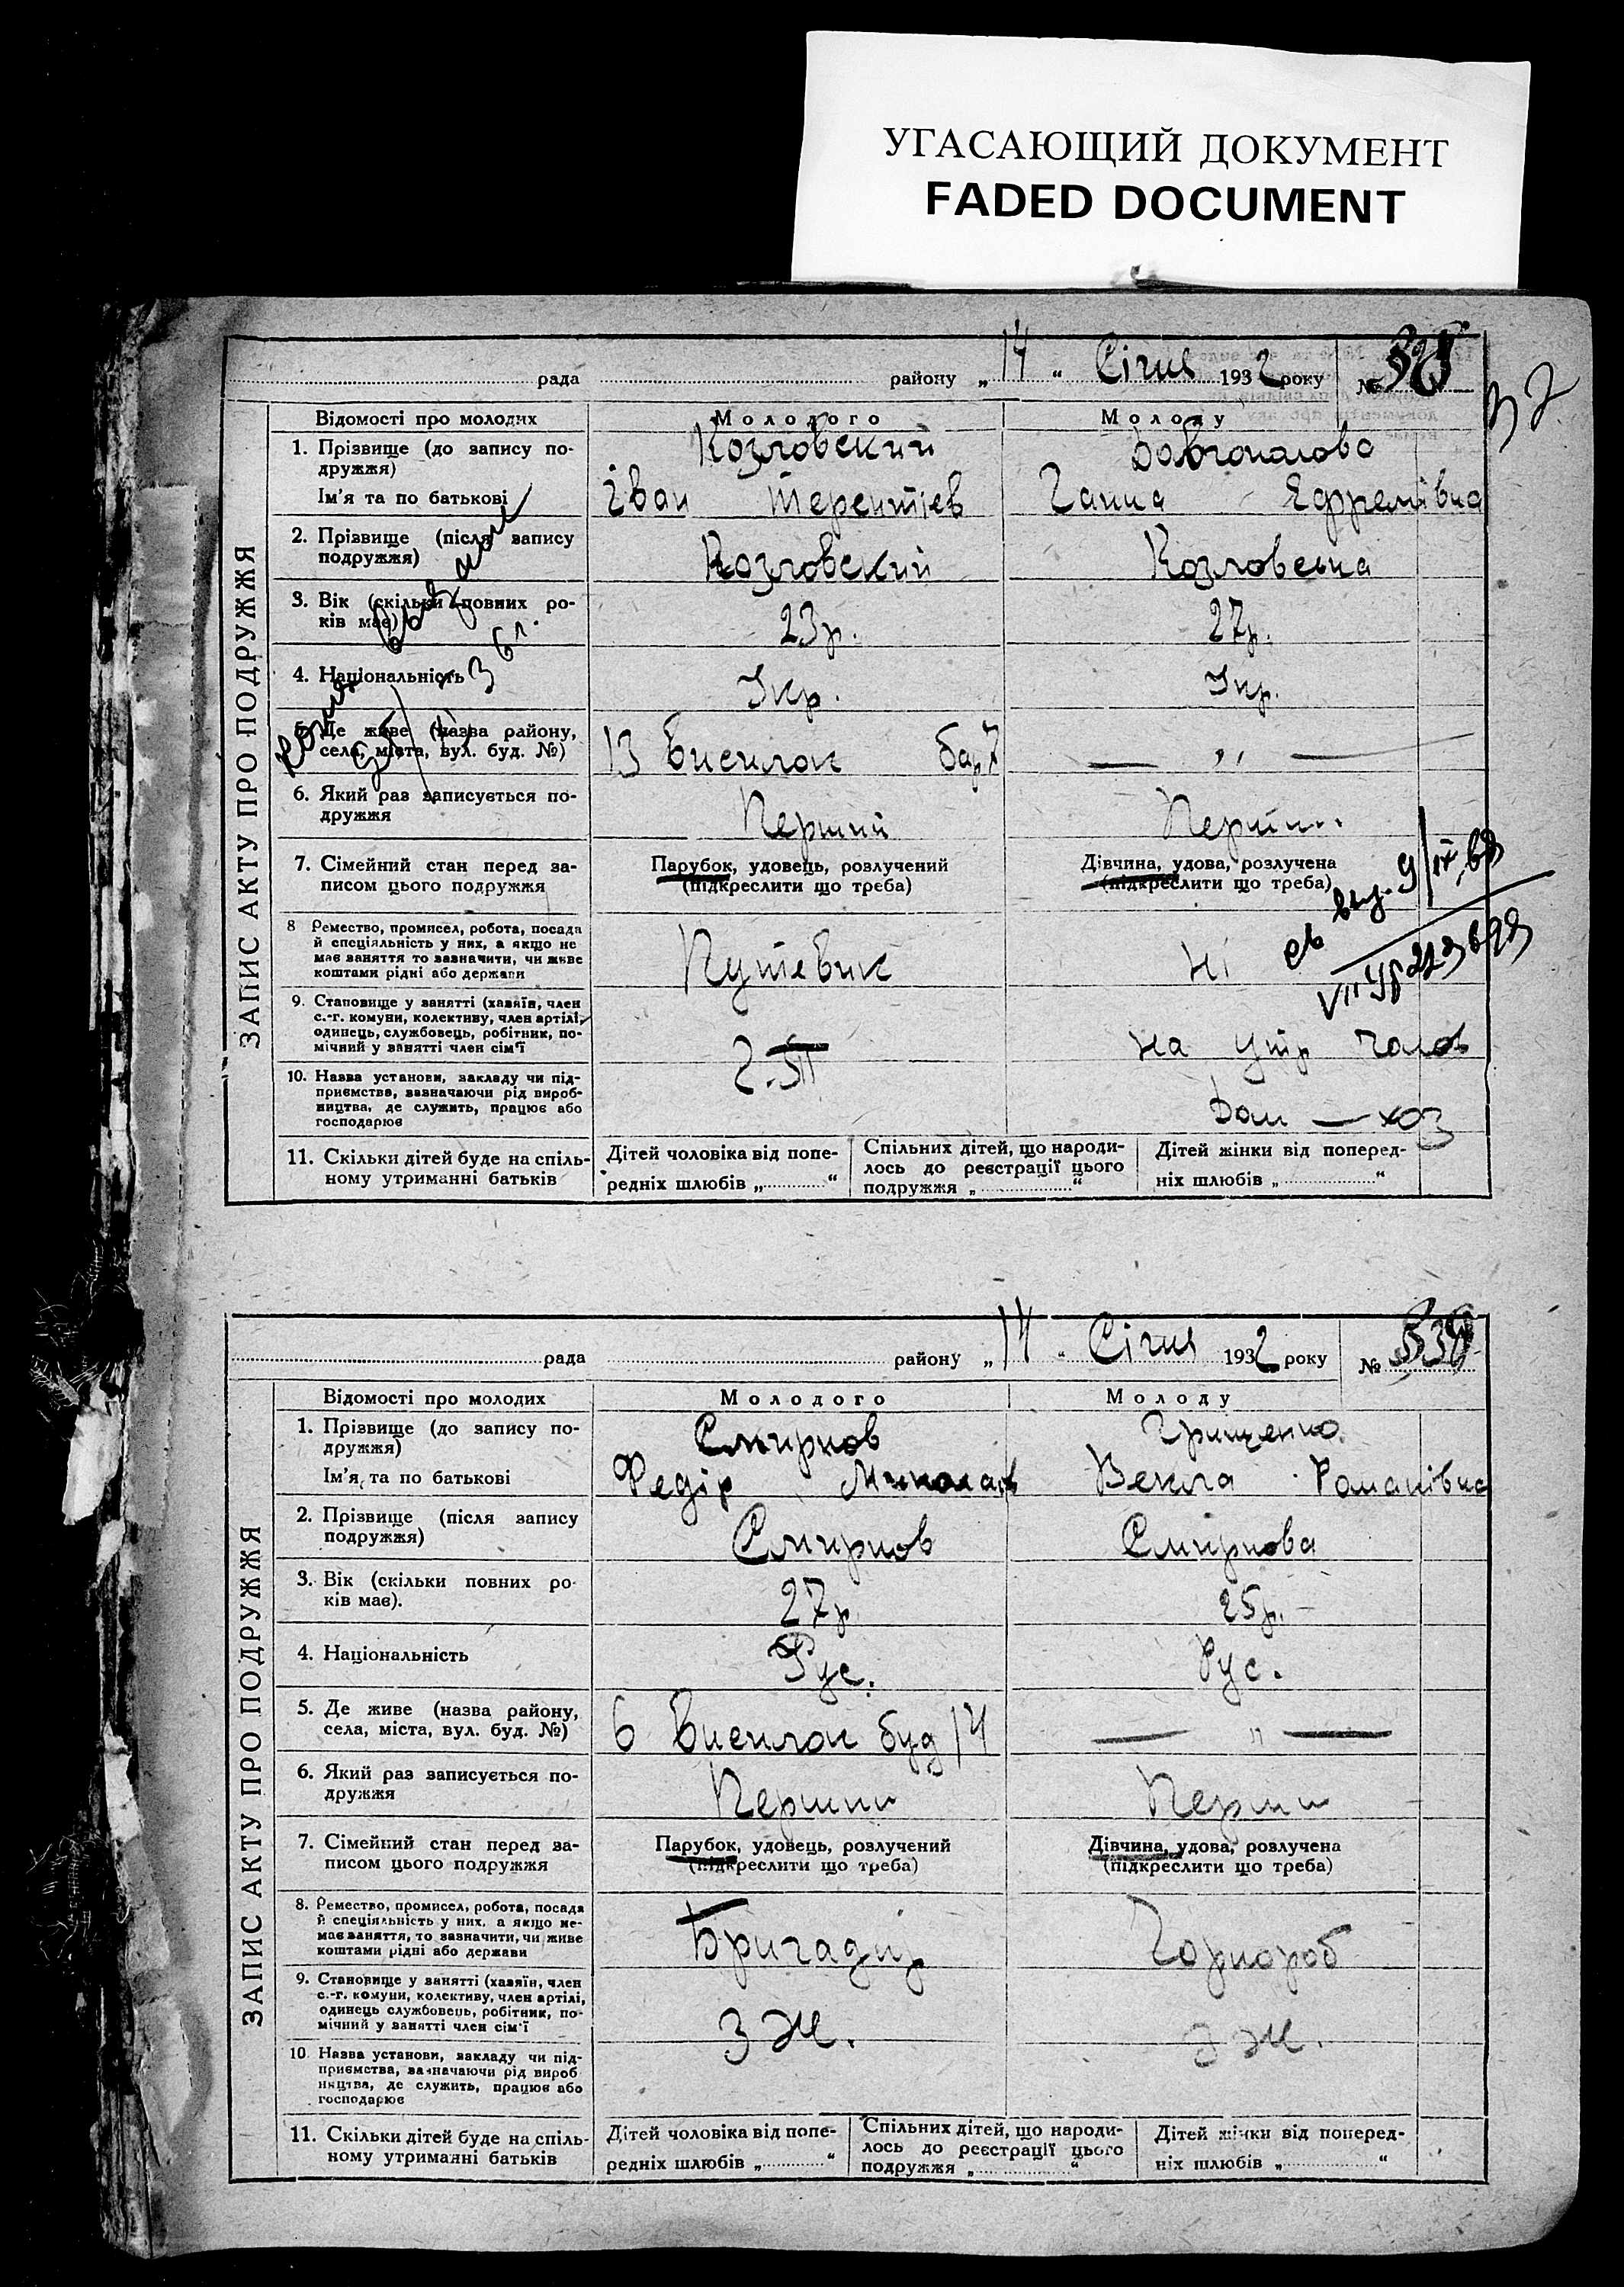 УГАСАЮЩИЙ ДОКУМЕНТ
FADED DOCUMENT
ЗАПИС АКТУ ПРО ПОДРУЖЖЯ
рада району „14“ Січня 1932 року №
Відомості про молодих Молодого Молоду
1. Прізвище (до запису по-
дружжя) Козловский
Ім'я та по батькові Іван Терентіев Ганна Єфремівна
2. Прізвище (після запису
подружжя) Козловский Козловська
3. Вік (скільки повних ро-
ків має) 23р. 27р.
4. Національність Укр. Укр.
5. Де живе (назва району,
села, міста, вул. буд. №) 13 Виселок бар 7 — „ —
6. Який раз записується по-
дружжя Перший Перший
7. Сімейний стан перед за-
писом цього подружжя
Парубок, удовець, розлучений
(підкреслити що треба)
Дівчина, удова, розлучена
(підкреслити що треба)
8 Ремество, промисел, робота, посада
й спеціяльність у них, а якщо не
має заняття то зазначити, чи живе
коштами рідні або держави
Путевик Ні
9. Становище у занятті (хазяїн, член
с.-г. комуни, колективу, член артілі,
одинець, службовець, робітник, по-
мічний у занятті член сім'ї
На утр чолов
10. Назва установи, закладу чи під-
приємства, зазначаючи рід вироб-
ництва, де служить, працює або
господарює
Дом — хоз
11. Скільки дітей буде на спіль-
ному утриманні батьків
Дітей чоловіка від попе-
редніх шлюбів „ “
Спільних дітей, що народи-
лось до реєстрації цього
подружжя „ “
Дітей жінки від поперед-
ніх шлюбів „ “
ЗАПИС АКТУ ПРО ПОДРУЖЖЯ
рада району „14“ Січня 1932 року №
Відомості про молодих Молодого Молоду
1. Прізвище (до запису по-
дружжя) Смирнов Грищенко
Ім'я та по батькові Федір Миколаїв Векла Романівна
2. Прізвище (після запису
подружжя) Смирнов Смирнова
3. Вік (скільки повних ро-
ків має). 27р 25р.
4. Національність Рус. Рус.
5. Де живе (назва району,
села, міста, вул. буд. №) 6 Виселок буд 14 — „ —
6. Який раз записується по-
дружжя Перший Перший
7. Сімейний стан перед за-
писом цього подружжя
Парубок, удовець, розлучений
(підкреслити що треба)
Дівчина, удова, розлучена
(підкреслити що треба)
8. Ремество, промисел, робота, посада
й спеціяльність у них, а якщо не-
має заняття, то зазначити, чи живе
коштами рідні або держави
Бригадир Чорнороб
9. Становище у занятті (хазяїн, член
с.-г. комуни, колективу, член артілі,
одинець службовець, робітник, по-
мічний у занятті член сім'ї
З Ж. З Ж.
10 Назва установи, закладу чи під-
приємства, зазначаючи рід вироб
ництва, де служить, працює або
господарює
11. Скільки дітей буде на спіль-
ному утриманні батьків
Дітей чоловіка від попе-
редніх шлюбів „ “
Спільних дітей, що народи-
лось до реєстрації цього
подружжя „ “
Дітей жінки від поперед-
ніх шлюбів „ “